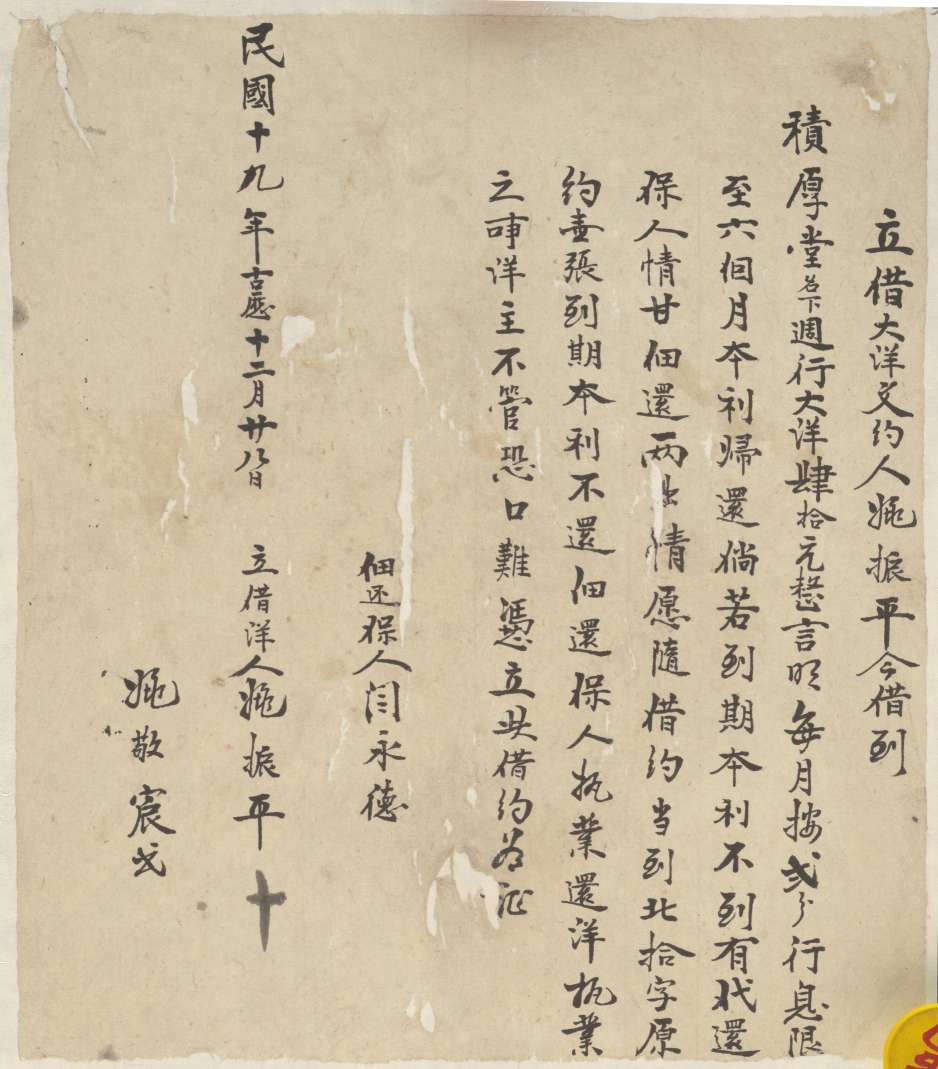 立借大洋文约人姚振平今借到
積厚堂名下週行大洋肆拾元整言明每月按弍分行息限
至六個月本利歸還倘若到期本利不到有代還
保人情甘佃還两出情愿隨借约当到北拾字原
约壹張到期本利不還佃還保人执業還洋执業
之时洋主不管恐口難憑立此借约为证
佃还保人闫永德
民國十九年古歷十二月廿八日 立借洋人姚振平 十
姚敬宸